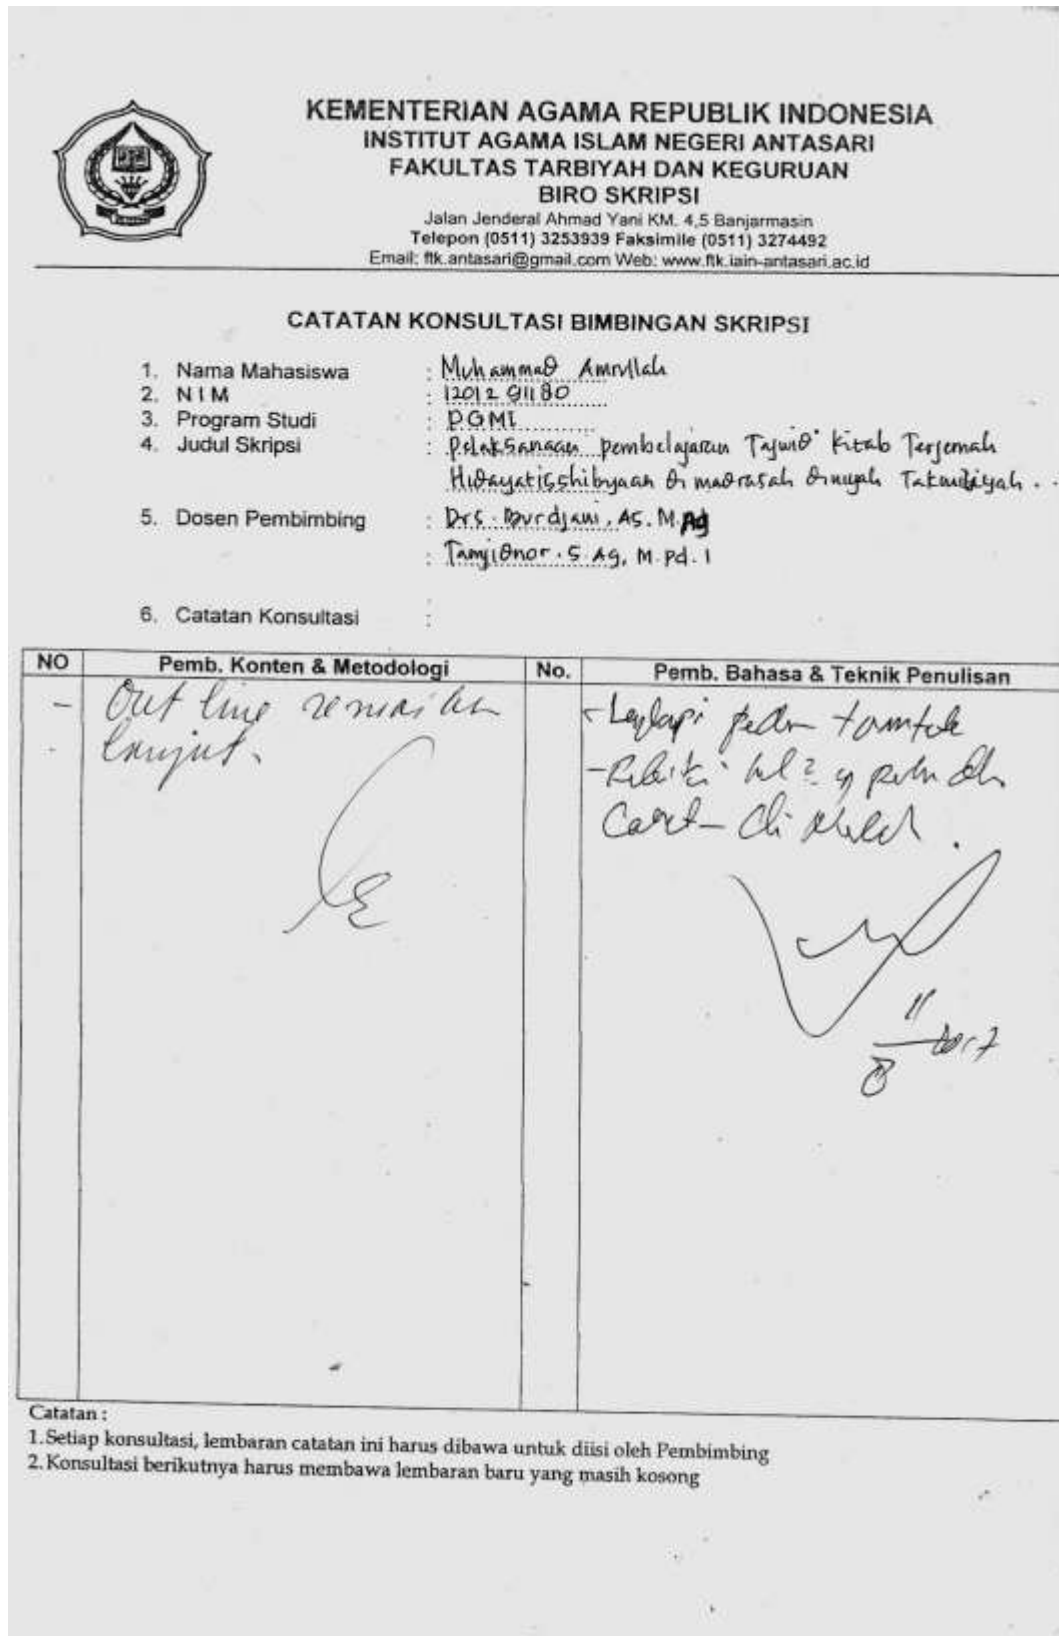 KEMENTERIAN AGAMA REPUBLIK INDONESIA
INSTITUT AGAMA ISLAM NEGERI ANTASARI
FAKULTAS TARBIYAH DAN KEGURUAN
BIRO SKRIPSI
Jalan Jenderal Ahmad Yani KM. 4,5 Banjarmasin
Telepon (0511) 3253939 Faksimile (0511) 3274492
Email: ftk.antasari@gmail.com Web: www.ftk.iain-antasari.ac.id
CATATAN KONSULTASI BIMBINGAN SKRIPSI
1. Nama Mahasiswa : Muhammad Amrullah
2. NIM : 1201291180
3. Program Studi : PGMI
4. Judul Skripsi : Pelaksanaan pembelajaran Tajwid Kitab Terjemah
Hidayatisshibyaan di madrasah diniyah Takmiliyah . .
5. Dosen Pembimbing : Drs. Burdjani, AS. M.Ag
: Tamjidnor. S. Ag, M. Pd. I
6. Catatan Konsultasi :
NO Pemb. Konten & Metodologi No. Pemb. Bahasa & Teknik Penulisan
- Out line
lanjut.
- Lengkapi
-
11
8 2017
Catatan :
1. Setiap konsultasi, lembaran catatan ini harus dibawa untuk diisi oleh Pembimbing
2. Konsultasi berikutnya harus membawa lembaran baru yang masih kosong